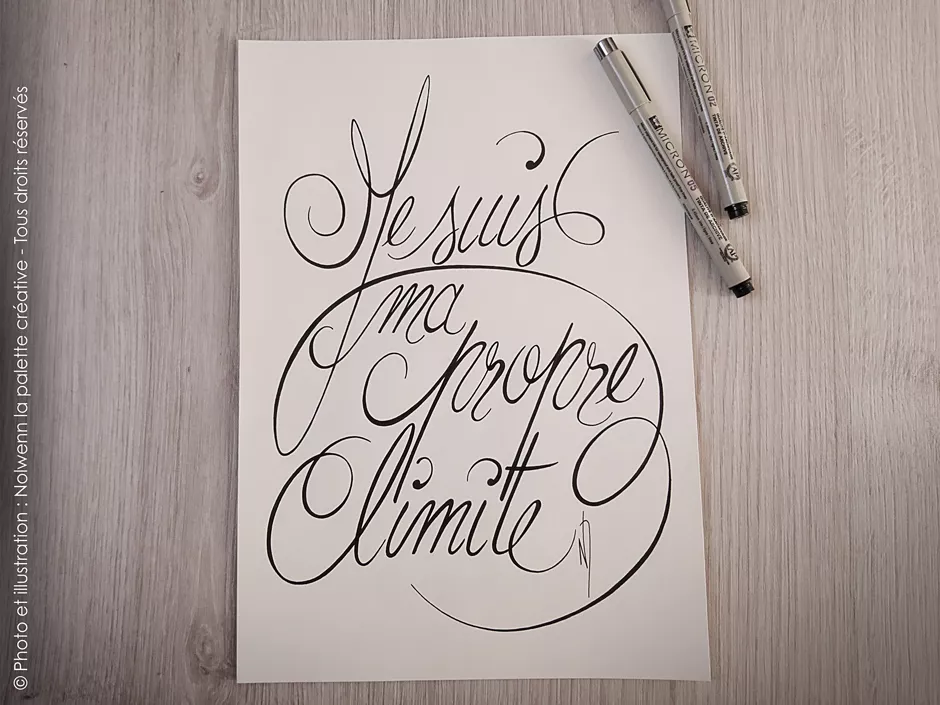 Je suis
ma
propre
limite
ND
MICRON 05
MICRON 02
© Photo et illustration : Nolwenn la palette créative - Tous droits réservés